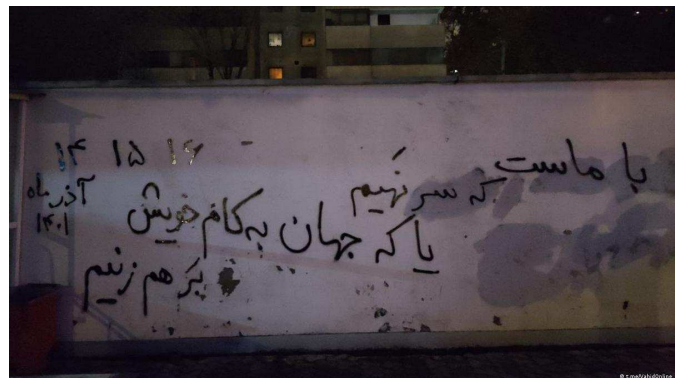 یا ماست
که سر نهیم
یا که جهان به کام خویش
بر هم زنیم
۱۴ ۱۵ ۱۶
آذر ماه
۱۴۰۱
© t.me/VahidOnline